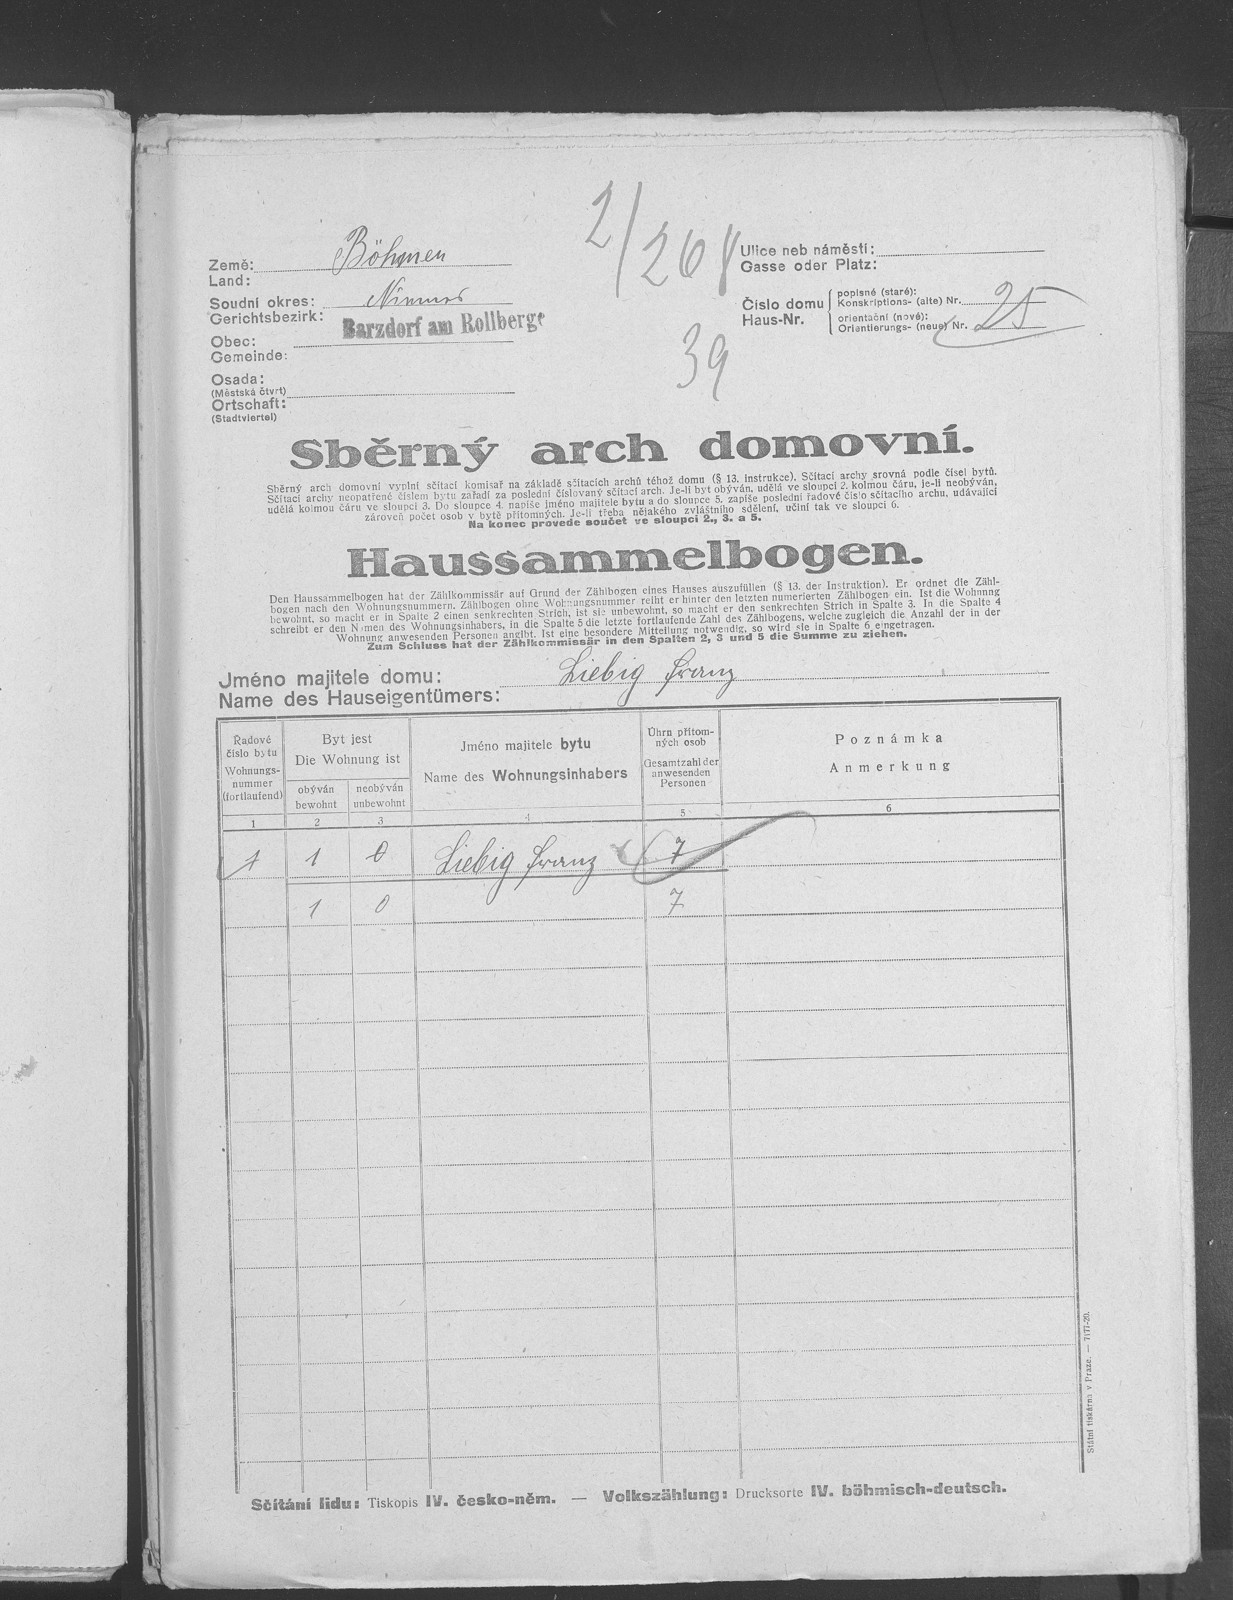 2/268
39
Země: Böhmen
Land:
Soudní okres: Niemes
Gerichtsbezirk:
Obec: Barzdorf am Rollberge
Gemeinde:
Osada:
(Městská čtvrt)
Ortschaft:
(Stadtviertel)
Ulice neb náměstí:
Gasse oder Platz:
Číslo domu
Haus-Nr.
popisné (staré):
Konskriptions- (alte) Nr.
orientační (nové):
Orientierungs- (neue) Nr.
25
Sběrný arch domovní.
Sběrný arch domovní vyplní sčítací komisař na základě sčítacích archů téhož domu (§ 13. instrukce). Sčítací archy srovná podle čísel bytů.
Sčítací archy neopatřené číslem bytu zařadí za poslední číslovaný sčítací arch. Je-li byt obýván, udělá ve sloupci 2. kolmou čáru, je-li neobýván,
udělá kolmou čáru ve sloupci 3. Do sloupce 4. napíše jméno majitele bytu a do sloupce 5. zapíše poslední řadové číslo sčítacího archu, udávající
zároveň počet osob v bytě přítomných. Je-li třeba nějakého zvláštního sdělení, učiní tak ve sloupci 6.
Na konec provede součet ve sloupci 2., 3. a 5.
Haussammelbogen.
Den Haussammelbogen hat der Zählkommissär auf Grund der Zählbogen eines Hauses auszufüllen (§ 13. der Instruktion). Er ordnet die Zähl-
bogen nach den Wohnungsnummern. Zählbogen ohne Wohnungsnummer reiht er hinter den letzten numerierten Zählbogen ein. Ist die Wohnung
bewohnt, so macht er in Spalte 2 einen senkrechten Strich, ist sie unbewohnt, so macht er den senkrechten Strich in Spalte 3. In die Spalte 4
schreibt er den Namen des Wohnungsinhabers, in die Spalte 5 die letzte fortlaufende Zahl des Zählbogens, welche zugleich die Anzahl der in der
Wohnung anwesenden Personen angibt. Ist eine besondere Mitteilung notwendig, so wird sie in Spalte 6 eingetragen.
Zum Schluss hat der Zählkommissär in den Spalten 2, 3 und 5 die Summe zu ziehen.
Jméno majitele domu: Liebig Franz
Name des Hauseigentümers:
Řadové
číslo bytu
Wohnungs-
nummer
(fortlaufend)
Byt jest
Die Wohnung ist
obýván
bewohnt
neobýván
unbewohnt
Jméno majitele bytu
Name des Wohnungsinhabers
Úhrn přítom-
ných osob
Gesamtzahl der
anwesenden
Personen
Poznámka
Anmerkung
1 2 3 4 5 6
1 1 0 Liebig Franz 7
1 0 7
Sčítání lidu: Tiskopis IV. česko-něm. — Volkszählung: Drucksorte IV. böhmisch-deutsch.
Státní tiskárna v Praze. — 7177-20.